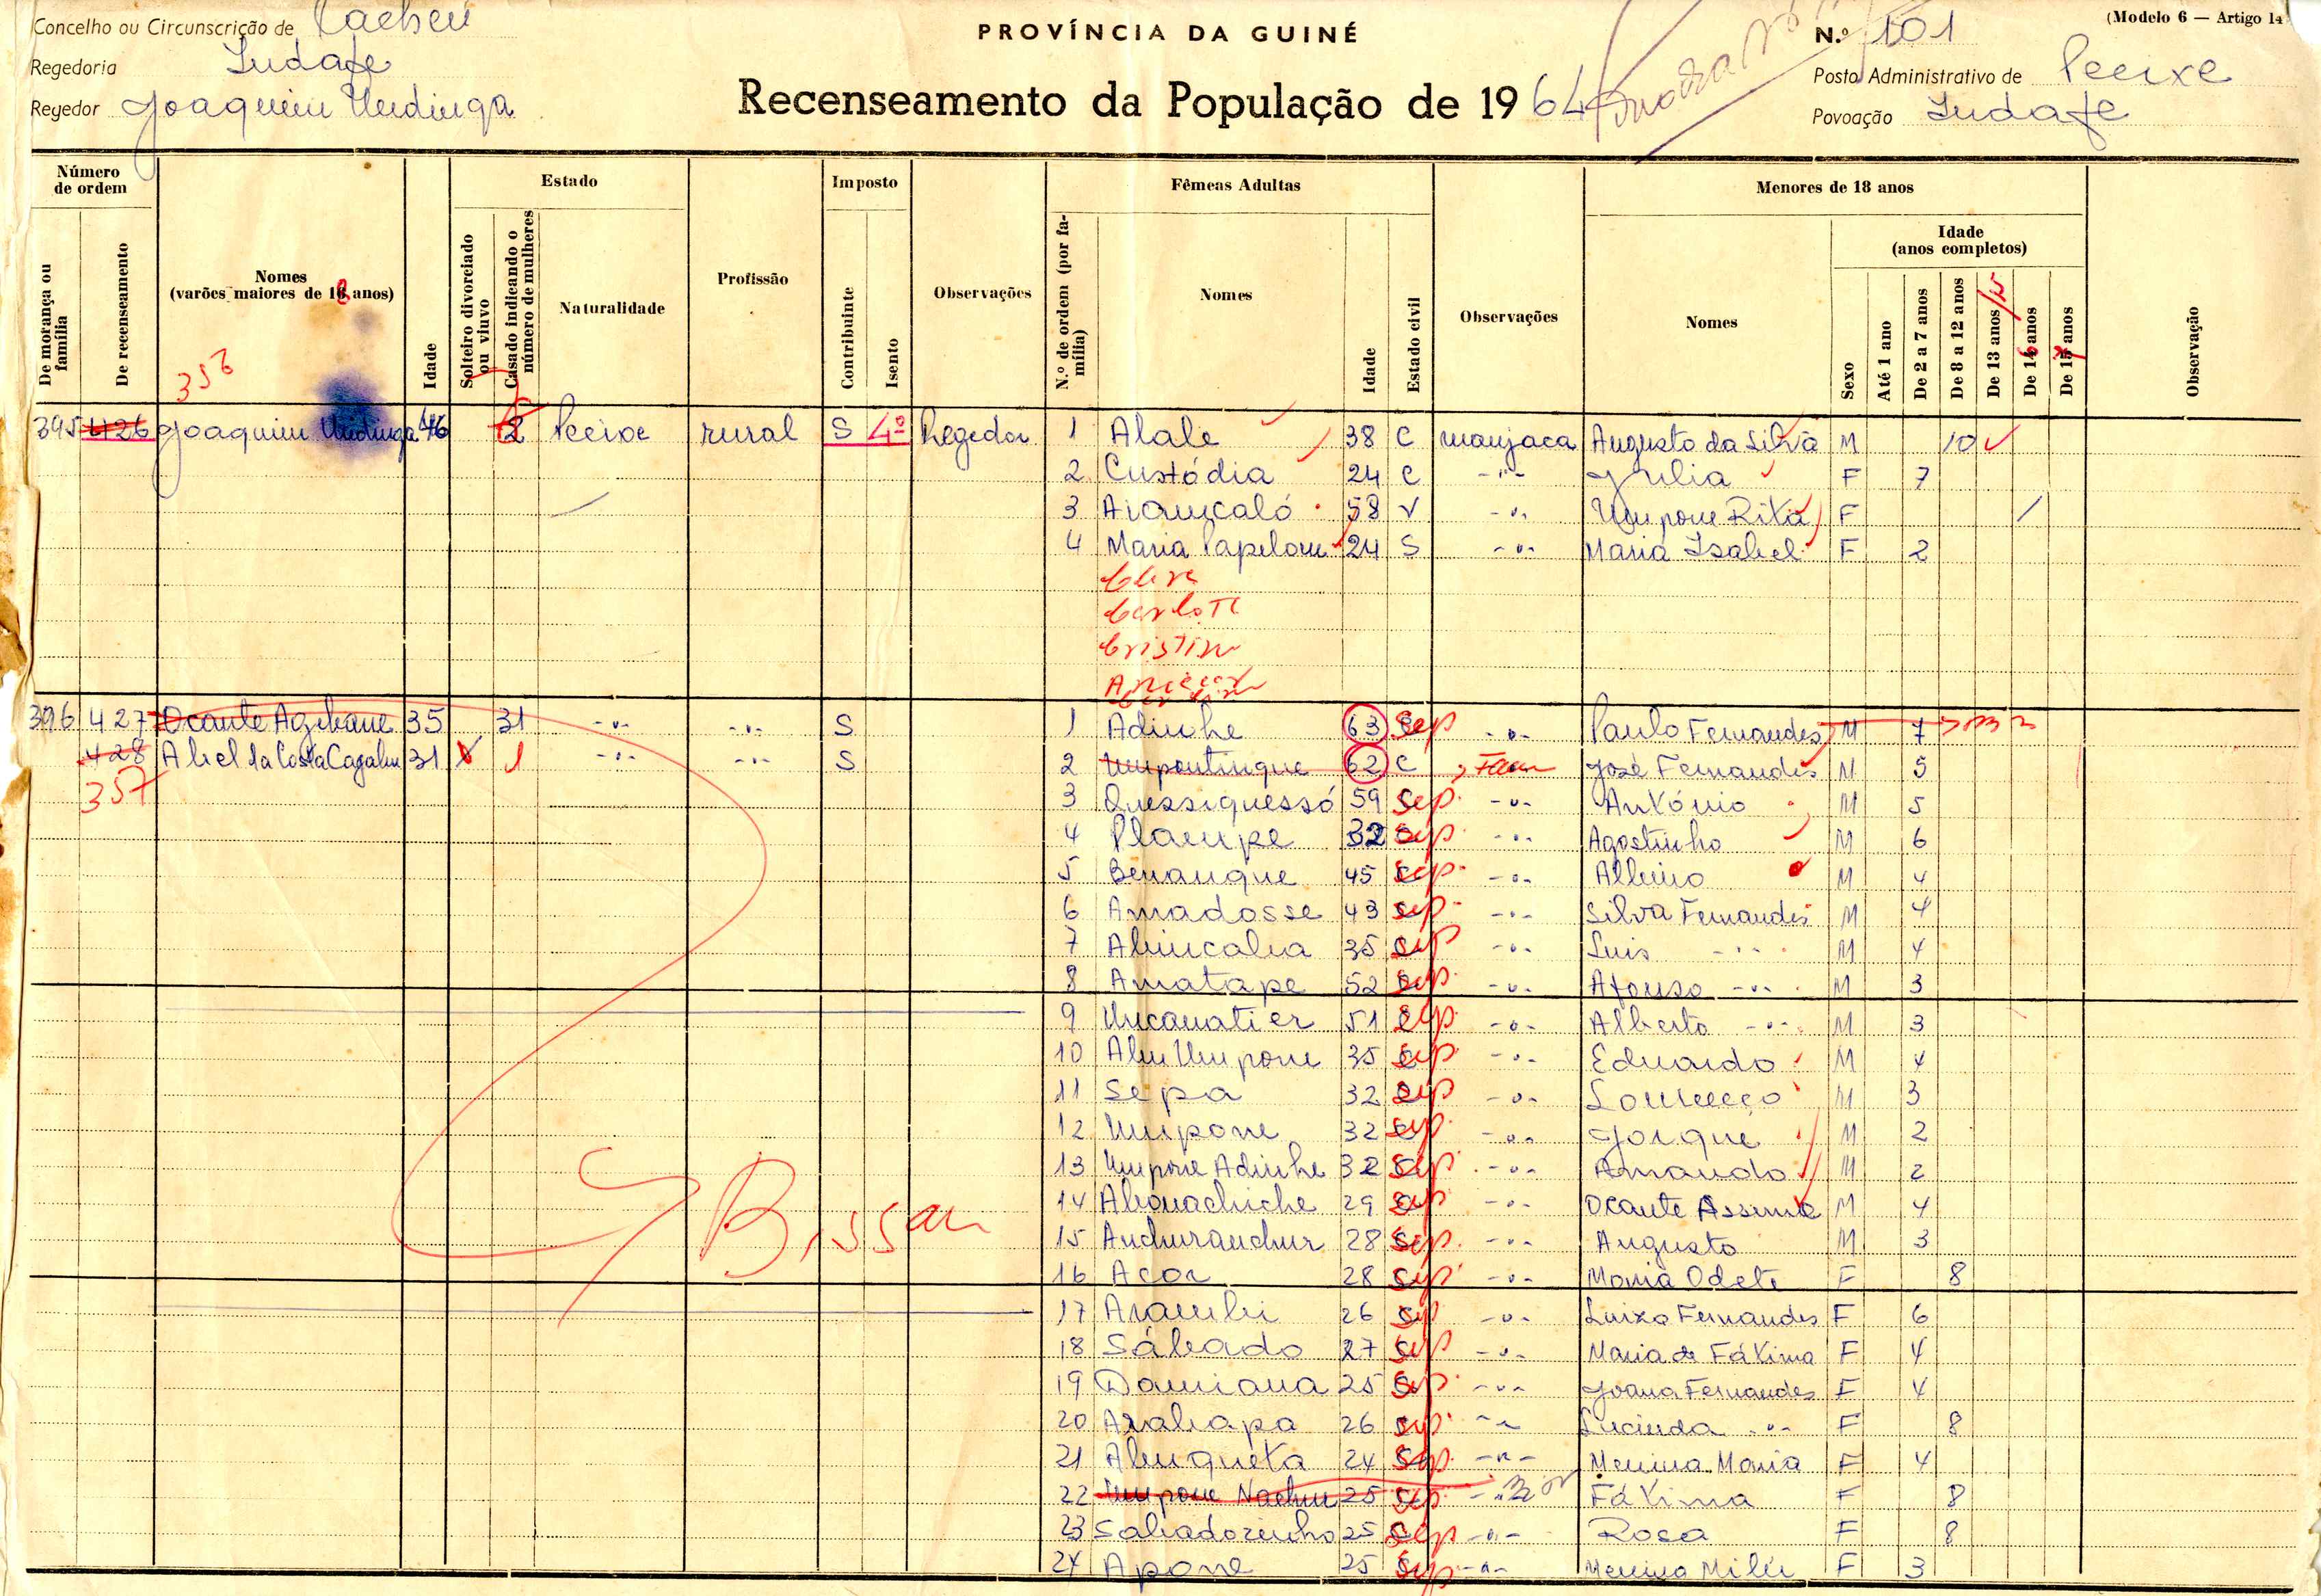 Concelho ou Circunscrição de Cacheu
PROVÍNCIA DA GUINÉ
N.º 101
(Modelo 6 — Artigo 14
Regedoria Indafe
Posto Administrativo de Pecixe
Regedor Joaquim Undinga
Recenseamento da População de 1964
Povoação Indafe
Número de ordem
Estado
Imposto
Fêmeas Adultas
Menores de 18 anos
Idade (anos completos)
De morança ou família
De recenseamento
Nomes (varões maiores de 18 anos)
Idade
Solteiro divorciado ou viuvo
Casado indicando o número de mulheres
Naturalidade
Profissão
Contribuinte
Isento
Observações
N.º de ordem (por família)
Nomes
Idade
Estado civil
Observações
Nomes
Sexo
Até 1 ano
De 2 a 7 anos
De 8 a 12 anos
De 13 anos
De 14 anos
De 15 anos
Observação
356
395 426 Joaquim Undinga 46 2 Pecixe rural S 4º Regedor 1 Alale 38 C manjaca Augusto da Silva M 10
2 Custódia 24 C -"- Julia F 7
3 58 V -"- Umpone Rita F /
4 Maria 24 S -"- Maria Isabel F 2
Cristin
396 427 Ocante 35 31 -"- -"- S 1 Adinhe 63 Sep -"- Paulo Fernandes M 7
428 Abel da Costa 31 1 -"- -"- S 2 Umpontinque 62 C José Fernandes M 5
357
3 Quessiquessó 59 Sep. -"- António M 5
4 Plampe 32 Sep -"- Agostinho M 6
5 Benanque 45 Sep. -"- Albino M 4
6 Amadosse 43 Sep -"- Silva Fernandes M 4
7 Abincaba 35 Sep -"- Luis -"- M 4
8 Amatape 52 Sep -"- Afonso -"- M 3
9 Uncanatier 51 Sep. -"- Alberto -"- M 3
10 Abu Umpone 35 Sep. -"- Eduardo M 4
11 Sepa 32 Sep -"- Lourenço M 3
12 Umpone 32 Sep. -"- Jorque M 2
13 Umpone Adinhe 32 Sep -"- Armando M 2
14 29 Sep -"- Ocante M 4
15 Anchuranchur 28 Sep. -"- Augusto M 3
Bissau
16 Acor 28 Sep -"- Maria Odete F 8
17 Arambi 26 Sep -"- Luiza Fernandes F 6
18 Sábado 27 Sep -"- Maria de Fátima F 4
19 Damiana 25 Sep. -"- Joana Fernandes F 4
20 26 Sep. -"- Lucinda -"- F 8
21 Abuqueta 24 Sep. -"- Menina Maria F 4
22 Umpone 25 Sep. Fátima F 8
23 Sabadozinho 25 Sep -"- Rosa F 8
24 Apone 25 Sep -"- Menina Milú F 3